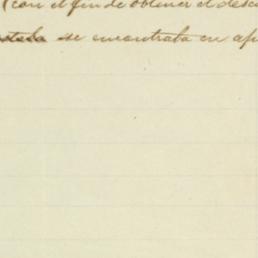 (con el fin de obtener el desc
se encontraba en ap